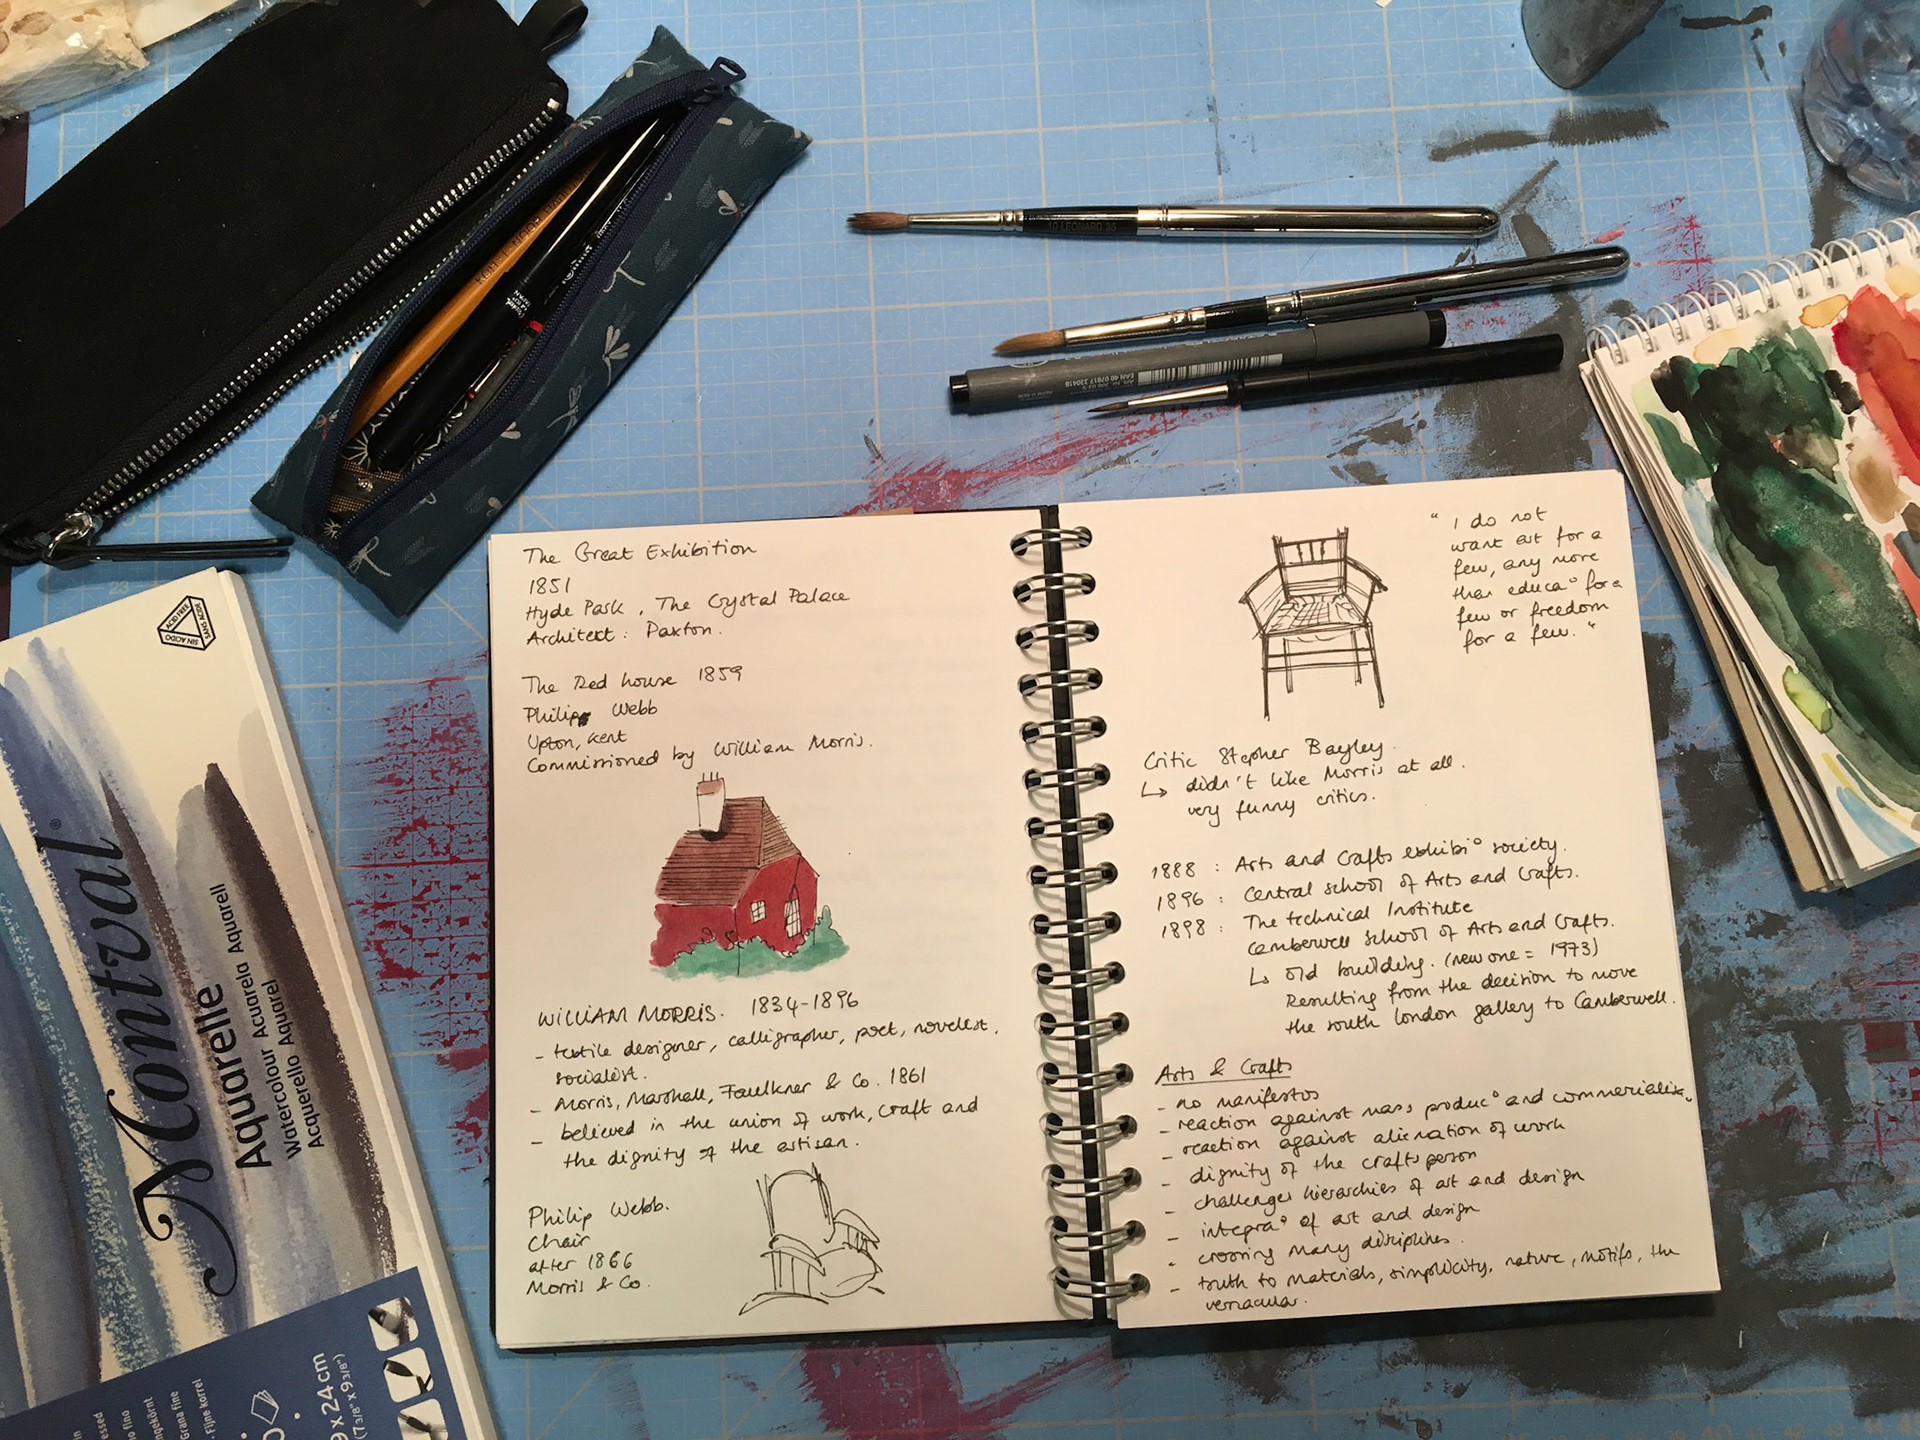 The Great Exhibition
1851
Hyde Park, The Crystal Palace
Architect: Paxton.
The Red house 1859
Philip Webb
Upton, Kent
Commissioned by William Morris.
WILLIAM MORRIS. 1834-1896
- textile designer, calligrapher, poet, novelist,
socialist.
- Morris, Marshall, Faulkner & Co. 1861
- believed in the union of work, craft and
the dignity of the artisan.
Philip Webb.
Chair
after 1866
Morris & Co.
"I do not
want art for a
few, any more
than educa° for a
few or freedom
for a few."
Critic Stephen Bayley.
↳ didn't like Morris at all.
very funny critics.
1888 : Arts and Crafts exhibi° society.
1896 : Central school of Arts and Crafts.
1898 : The technical Institute
Camberwell school of Arts and Crafts.
↳ old building. (new one = 1973)
Resulting from the decision to move
the south london gallery to Camberwell.
Arts & Crafts
- no manifestos
- reaction against mass produc° and commercialism.
- reaction against alienation of work
- dignity of the craftsperson
- challenges hierarchies of art and design
- integra° of art and design
- crossing many disciplines.
- truth to materials, simplicity, nature, motifs, the
vernacular.
10 LEONARD 35
EAN 40 07817 330418
KOH-I-NOOR
ACID FREE
SANS ACIDE
SIN ACIDO
Montval®
Aquarelle
Watercolour Acuarela Aquarell
Acquerello Aquarel
9 x 24 cm
(7 3/8" x 9 3/8")
Grana fine
Fijne korrel
37
23